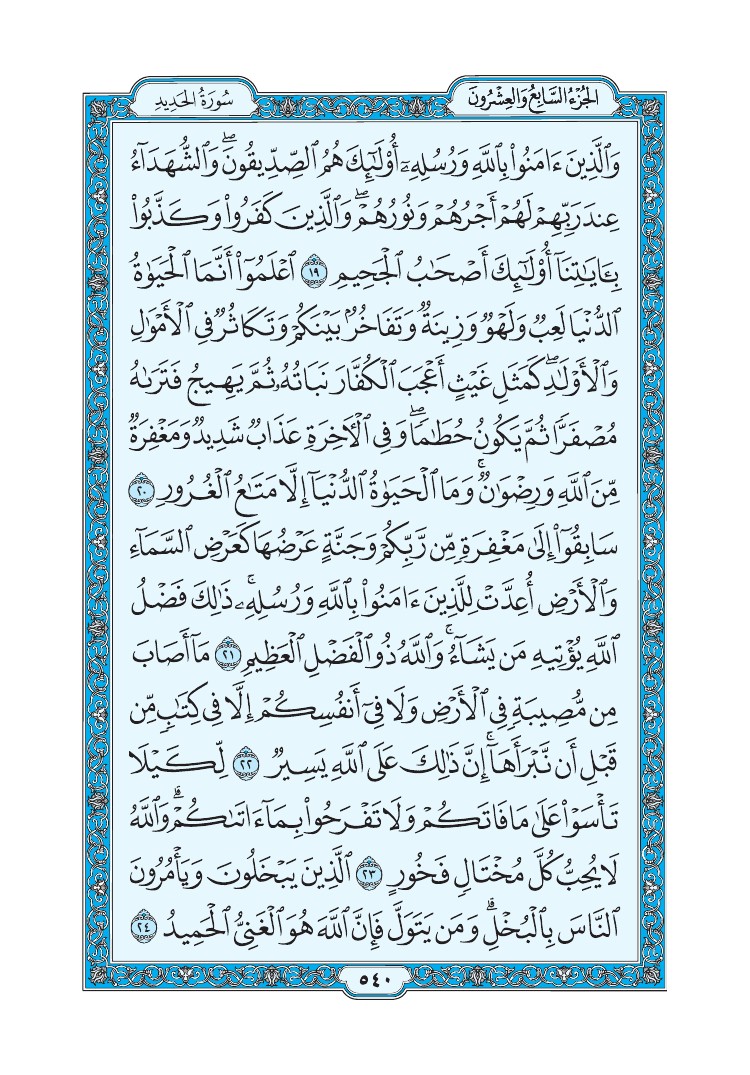 الجُزْءُ السَّابِعُ وَالعِشْرُونَ
سُورَةُ الحَدِيدِ
وَٱلَّذِينَ ءَامَنُواْ بِٱللَّهِ وَرُسُلِهِۦٓ أُوْلَٰٓئِكَ هُمُ ٱلصِّدِّيقُونَۖ وَٱلشُّهَدَآءُ
عِندَ رَبِّهِمۡ لَهُمۡ أَجۡرُهُمۡ وَنُورُهُمۡۖ وَٱلَّذِينَ كَفَرُواْ وَكَذَّبُواْ
بِـَٔايَٰتِنَآ أُوْلَٰٓئِكَ أَصۡحَٰبُ ٱلۡجَحِيمِ ١٩ ٱعۡلَمُوٓاْ أَنَّمَا ٱلۡحَيَوٰةُ
ٱلدُّنۡيَا لَعِبٞ وَلَهۡوٞ وَزِينَةٞ وَتَفَاخُرُۢ بَيۡنَكُمۡ وَتَكَاثُرٞ فِي ٱلۡأَمۡوَٰلِ
وَٱلۡأَوۡلَٰدِۖ كَمَثَلِ غَيۡثٍ أَعۡجَبَ ٱلۡكُفَّارَ نَبَاتُهُۥ ثُمَّ يَهِيجُ فَتَرَىٰهُ
مُصۡفَرّٗا ثُمَّ يَكُونُ حُطَٰمٗاۖ وَفِي ٱلۡأٓخِرَةِ عَذَابٞ شَدِيدٞ وَمَغۡفِرَةٞ
مِّنَ ٱللَّهِ وَرِضۡوَٰنٞۚ وَمَا ٱلۡحَيَوٰةُ ٱلدُّنۡيَآ إِلَّا مَتَٰعُ ٱلۡغُرُورِ ٢٠
سَابِقُوٓاْ إِلَىٰ مَغۡفِرَةٖ مِّن رَّبِّكُمۡ وَجَنَّةٍ عَرۡضُهَا كَعَرۡضِ ٱلسَّمَآءِ
وَٱلۡأَرۡضِ أُعِدَّتۡ لِلَّذِينَ ءَامَنُواْ بِٱللَّهِ وَرُسُلِهِۦۚ ذَٰلِكَ فَضۡلُ
ٱللَّهِ يُؤۡتِيهِ مَن يَشَآءُۚ وَٱللَّهُ ذُو ٱلۡفَضۡلِ ٱلۡعَظِيمِ ٢١ مَآ أَصَابَ
مِن مُّصِيبَةٖ فِي ٱلۡأَرۡضِ وَلَا فِيٓ أَنفُسِكُمۡ إِلَّا فِي كِتَٰبٖ مِّن
قَبۡلِ أَن نَّبۡرَأَهَآۚ إِنَّ ذَٰلِكَ عَلَى ٱللَّهِ يَسِيرٞ ٢٢ لِّكَيۡلَا
تَأۡسَوۡاْ عَلَىٰ مَا فَاتَكُمۡ وَلَا تَفۡرَحُواْ بِمَآ ءَاتَىٰكُمۡۗ وَٱللَّهُ
لَا يُحِبُّ كُلَّ مُخۡتَالٖ فَخُورٍ ٢٣ ٱلَّذِينَ يَبۡخَلُونَ وَيَأۡمُرُونَ
ٱلنَّاسَ بِٱلۡبُخۡلِۗ وَمَن يَتَوَلَّ فَإِنَّ ٱللَّهَ هُوَ ٱلۡغَنِيُّ ٱلۡحَمِيدُ ٢٤
٥٤٠